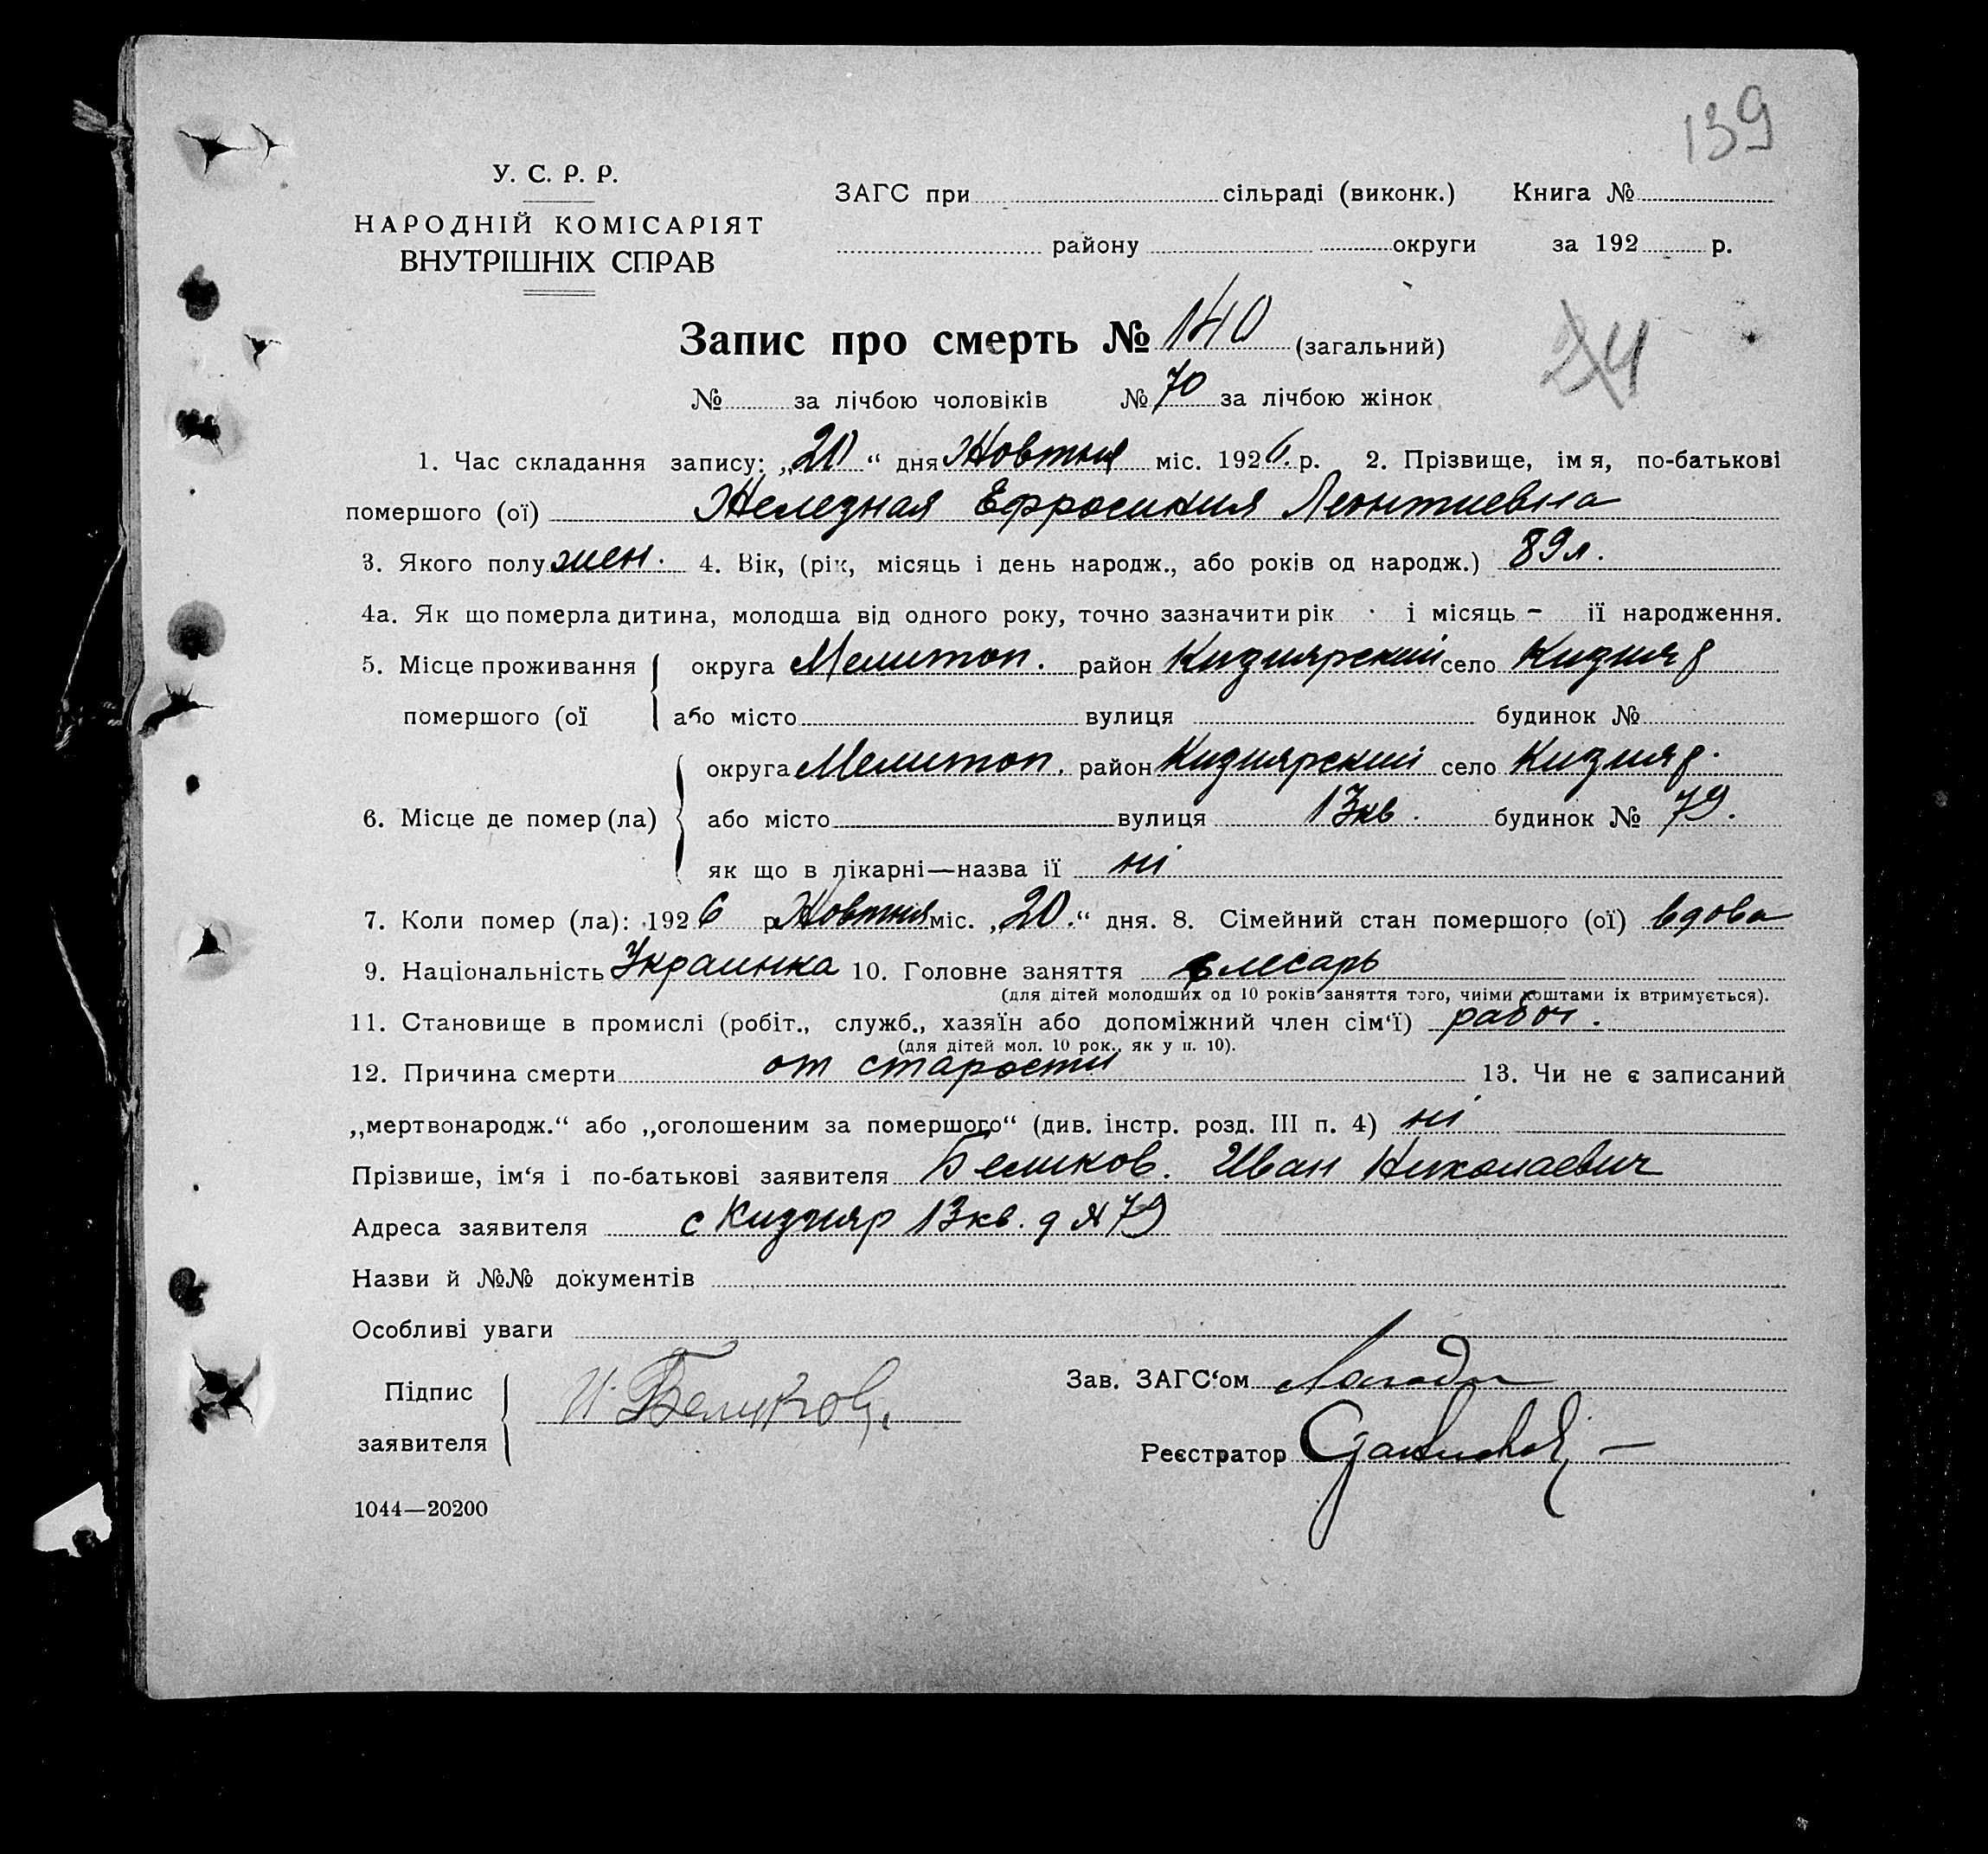 139
У. С. Р. Р.
НАРОДНІЙ КОМІСАРІЯТ
ВНУТРІШНІХ СПРАВ
ЗАГС при сільраді (виконк.) Книга №
району округи за 192 р.
Запис про смерть № 140 (загальний)
№ за лічбою чоловіків № 70 за лічбою жінок
1. Час складання запису: „20“ дня Жовтня міс. 1926. р. 2. Прізвище, ім я, по-батькові
помершого (ої) Железная Ефросиния Леонтиевна
3. Якого полу жен. 4. Вік, (рік, місяць і день народж., або років од народж.) 89 л.
4а. Як що померла дитина, молодша від одного року, точно зазначити рік і місяць – її народження.
5. Місце проживання округа Мелитоп. район Кизиярский село Кизияр
помершого (ої або місто вулиця будинок №
округа Мелитоп. район Кизиярский село Кизияр.
6. Місце де помер (ла) або місто вулиця 13 кв. будинок № 79.
як що в лікарні—назва її ні
7. Коли помер (ла): 1926 р. Жовтня міс. „20.“ дня. 8. Сімейний стан помершого (ої) вдова
9. Національність Украинка 10. Головне заняття слесарь
(для дітей молодших од 10 років заняття того, чиїми коштами їх втримується).
11. Становище в промислі (робіт., служб., хазяїн або допоміжний член сім‘ї) рабоч.
(для дітей мол. 10 рок., як у п. 10).
12. Причина смерти от старости 13. Чи не є записаний
„мертвонародж.“ або „оголошеним за помершого“ (див. інстр. розд. III п. 4) ні
Прізвише, ім‘я і по-батькові заявителя Беликов. Иван Николаевич
Адреса заявителя с Кизияр 13 кв. д № 79
Назви й №№ документів
Особливі уваги
Підпис
заявителя И. Беликов.
Зав. ЗАГС‘ом
Реєстратор
1044—20200